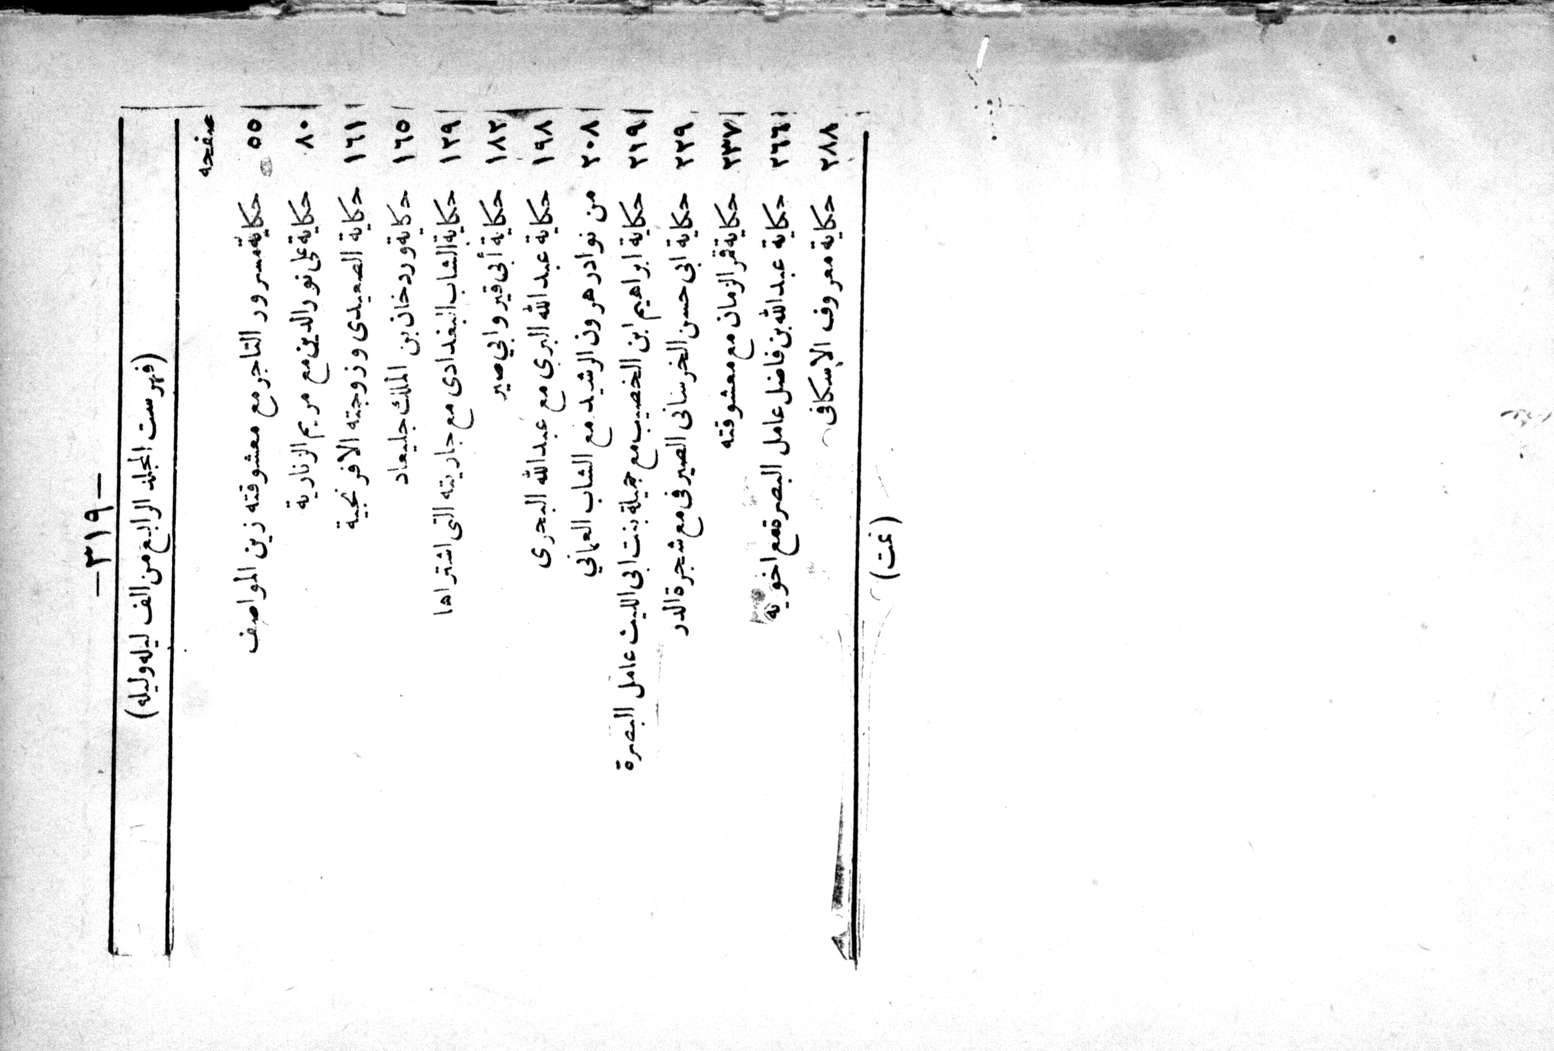 — ٣١٩ —
(فهرست المجلد الرابع من الف ليله وليله)
صفحه
٥٥ حكاية مسرور التاجر مع معشوقته زين المواصف
٨٠ حكاية على نور الدين مع مريم الزنارية
١٦١ حكاية الصعيدى وزوجته الافرنجية
١٦٥ حكاية وردخان بن الملك جليعاد
١٣٩ حكاية الشاب البغدادى مع جاريته التى اشتراها
١٨٢ حكاية أبى قير وابي صير
١٩٨ حكاية عبد الله البرى مع عبد الله البحرى
٢٠٨ من نوادر هرون الرشيد مع الشاب العمانى
٢١٩ حكاية ابراهيم ابن الخصيب مع جميلة بنت ابى الليث عامل البصرة
٢٢٩ حكاية ابى حسن الخرسانى الصيرفى مع شجرة الدر
٢٣٧ حكاية قمر الزمان مع معشوقته
٢٦٦ حكاية عبد الله بن فاضل عامل البصرة مع اخويه
٢٨٨ حكاية معروف الاسكافى
(تمت)